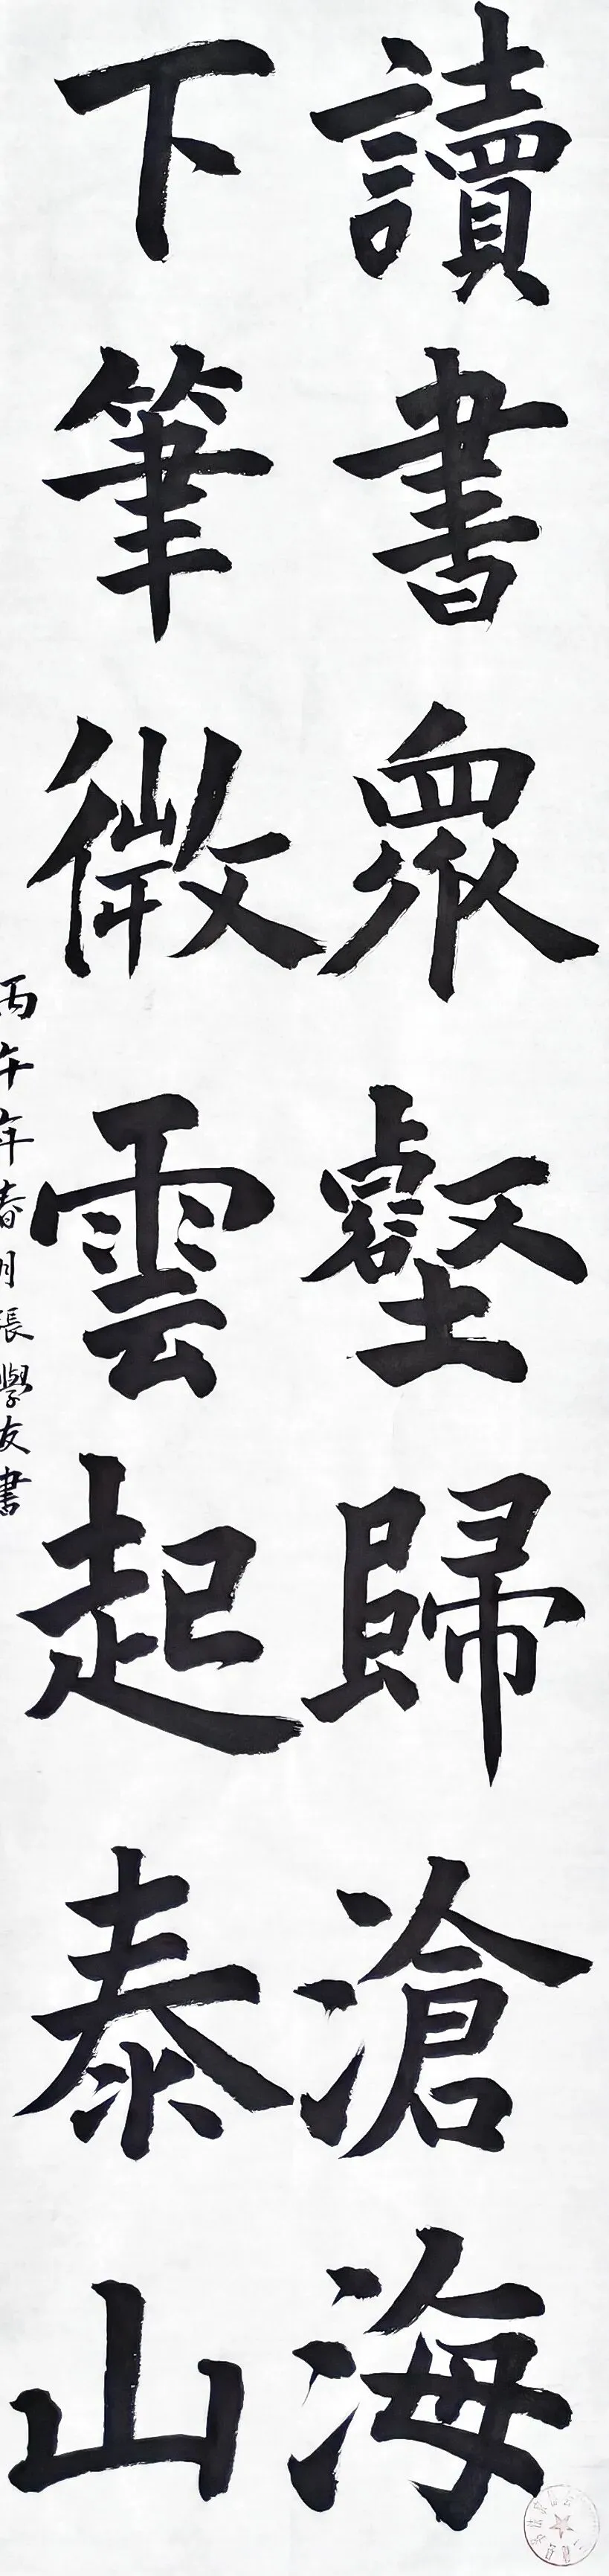 讀書衆壑歸滄海
下筆微雲起泰山
丙午年春月張學友書